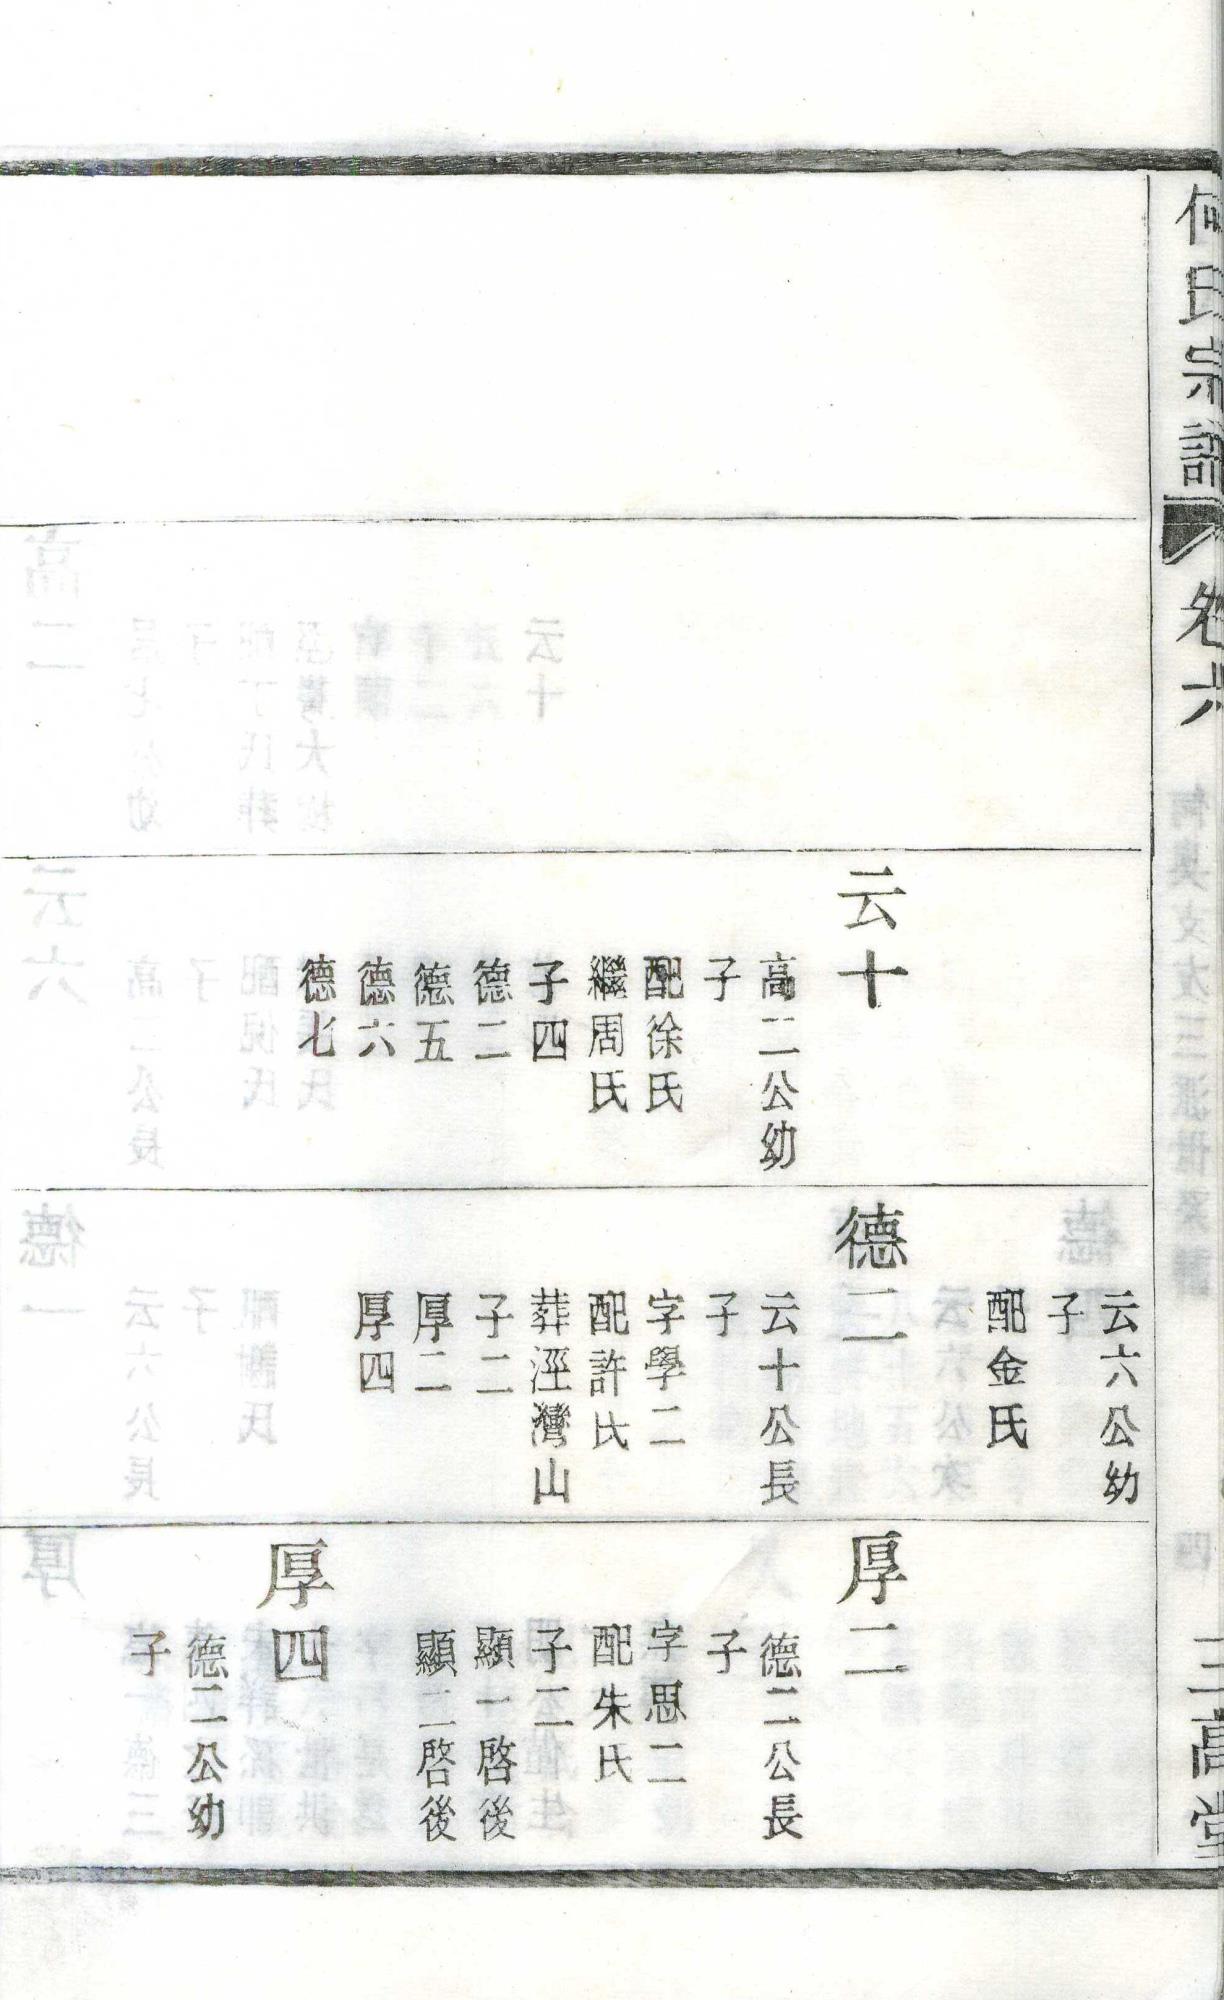 何氏宗譜
卷六
三高堂
云十
高二公幼
子
配徐氏
繼周氏
子四
德二
德五
德六
德七
云六公幼
子
配金氏
德二
云十公長
子
字學二
配許氏
葬涇灣山
子二
厚二
厚四
厚二
德二公長
子
字思二
配朱氏
子二
顯一啓後
顯二啓後
厚四
德二公幼
子